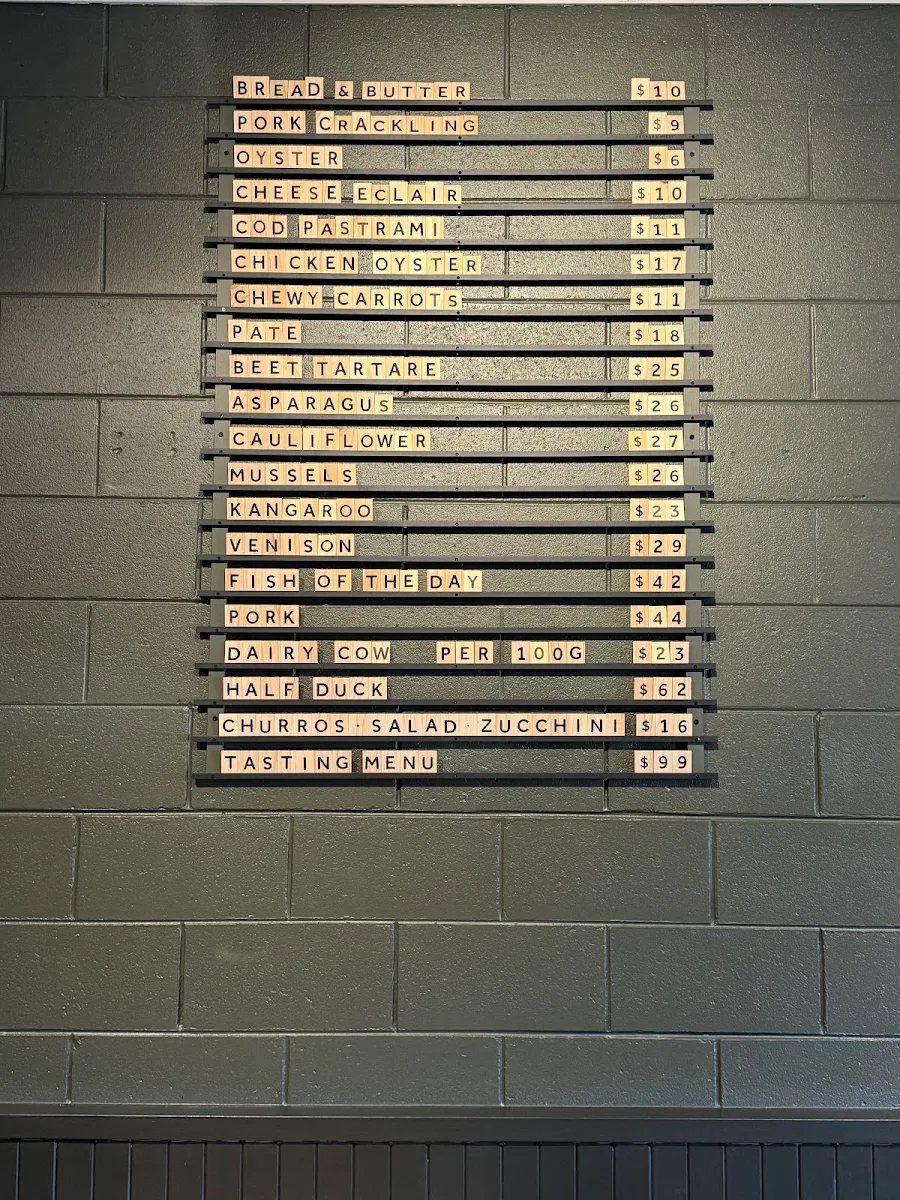 BREAD & BUTTER $10
PORK CRACKLING $9
OYSTER $6
CHEESE ECLAIR $10
COD PASTRAMI $11
CHICKEN OYSTER $17
CHEWY CARROTS $11
PATE $18
BEET TARTARE $25
ASPARAGUS $26
CAULIFLOWER $27
MUSSELS $26
KANGAROO $23
VENISON $29
FISH OF THE DAY $42
PORK $44
DAIRY COW PER 100G $23
HALF DUCK $62
CHURROS · SALAD · ZUCCHINI $16
TASTING MENU $99